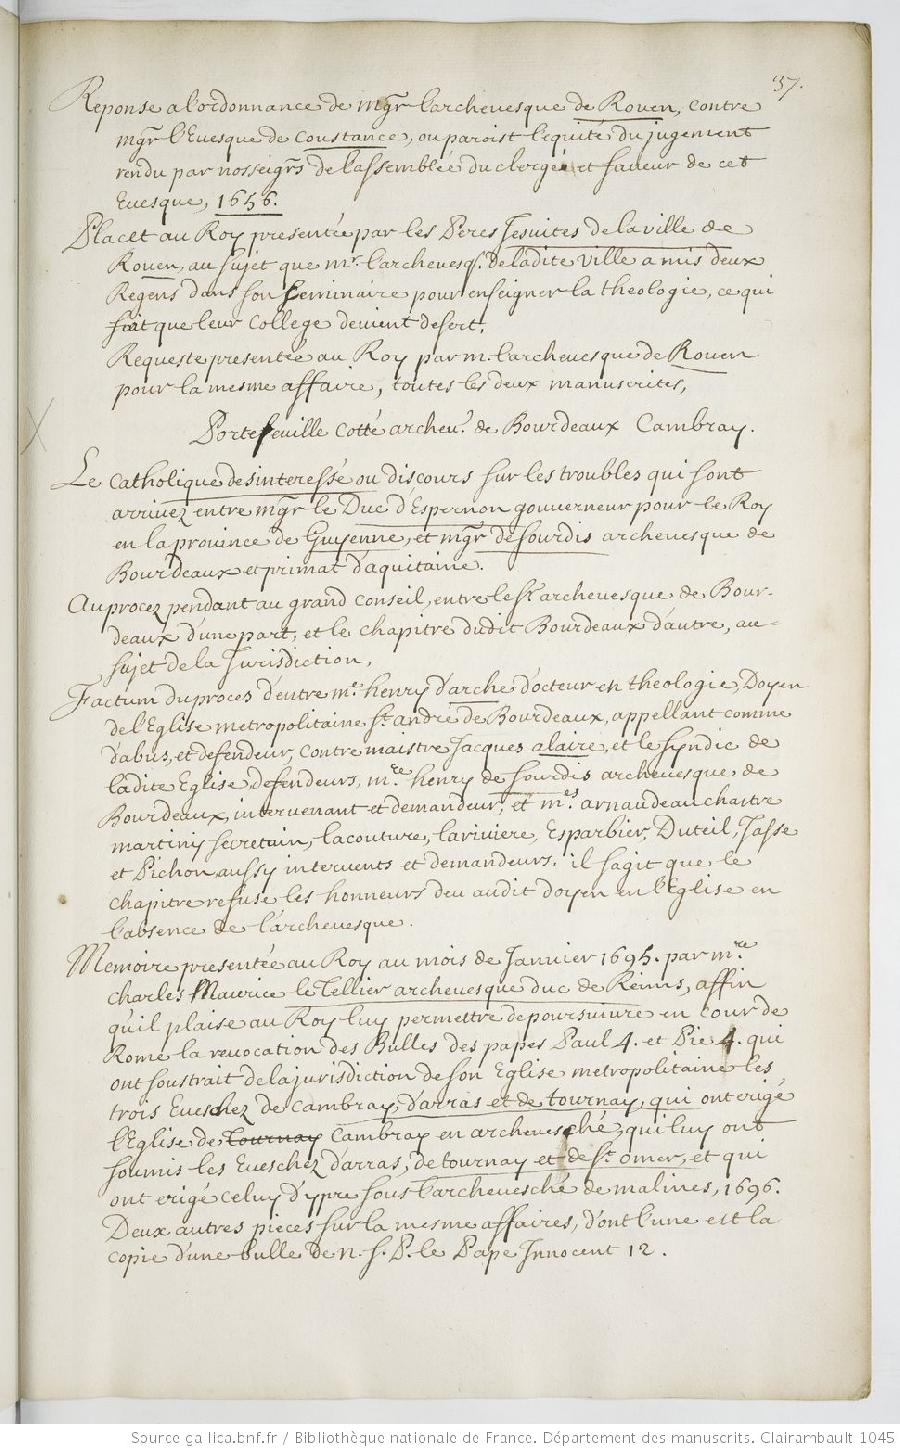 37.
Reponse a l'ordonnance de Mgr l'archeuesque de Rouen, contre
Mgr l'Euesque de Constance, ou paroist l'equité du jugement
rendu par nosseigrs de l'assemblée du clergé et faueur de cet
Euesque, 1656.
Placet au Roy presentée par les Peres Jesuites de la ville de
Rouen, au sujet que mr. l'archeuesq. de ladite ville a mis deux
Regens dans son Seminaire pour enseigner la theologie, ce qui
fait que leur College deuient desert.
Requeste presentée au Roy par m. l'archeuesque de Rouen
pour la mesme affaire, toutes les deux manuscrites,
Portefeuille cotté archeu. de Bourdeaux Cambray.
Le Catholique desinteressé ou discours sur les troubles qui sont
arriuez entre Mgr le Duc d'Espernon gouuerneur pour le Roy
en la prouince de Guyenne, et Mgr de Sourdis archeuesque de
Bourdeaux et primat d'aquitaine.
Au procez pendant au grand Conseil, entre le Sr archeuesque de Bour-
deaux d'une part, et le chapitre dudit Bourdeaux d'autre, au
sujet de la Jurisdiction,
Factum du proces d'entre me. henry d'arche docteur en theologie, Doyen
de l'Eglise metropolitaine St. andré de Bourdeaux, appellant comme
d'abus, et defendeur, contre maistre Jacques alaire, et le syndic de
ladite Eglise defendeurs, mre. henry de Sourdis archeuesque de
Bourdeaux, interuenant et demandeur, et mes. arnaudeau chartre
martiny secretain, lacouture, lariuiere, Esparbier, Duteil, Jasse
et Pichon aussy interuents et demandeurs. il sagit que le
chapitre refuse les honneurs deu audit doyen en l'Eglise en
l'absence de l'archeuesque.
Memoire presentée au Roy au mois de Januier 1695. par mre
Charles Maurice le Tellier archeuesque duc de Reims, affin
qu'il plaise au Roy luy permettre de poursuiure en cour de
Rome la reuocation des Bulles des papes Paul 4. et Pie 4. qui
ont soustrait de la jurisdiction de son Eglise metropolitaine les
trois Eueschez de Cambray, d'arras et de tournay, qui ont erigé
l'Eglise de Tournay Cambray en archeuesché, qui luy ont
soumis les Eueschez d'arras, de tournay et de St. omer, et qui
ont erigé celuy d'ypre sous l'archeuesché de malines, 1696.
Deux autres pieces sur la mesme affaires, dont l'une est la
copie d'une bulle de N. S. P. le Pape Innocent 12.
Source gallica.bnf.fr / Bibliothèque nationale de France. Département des manuscrits. Clairambault 1045